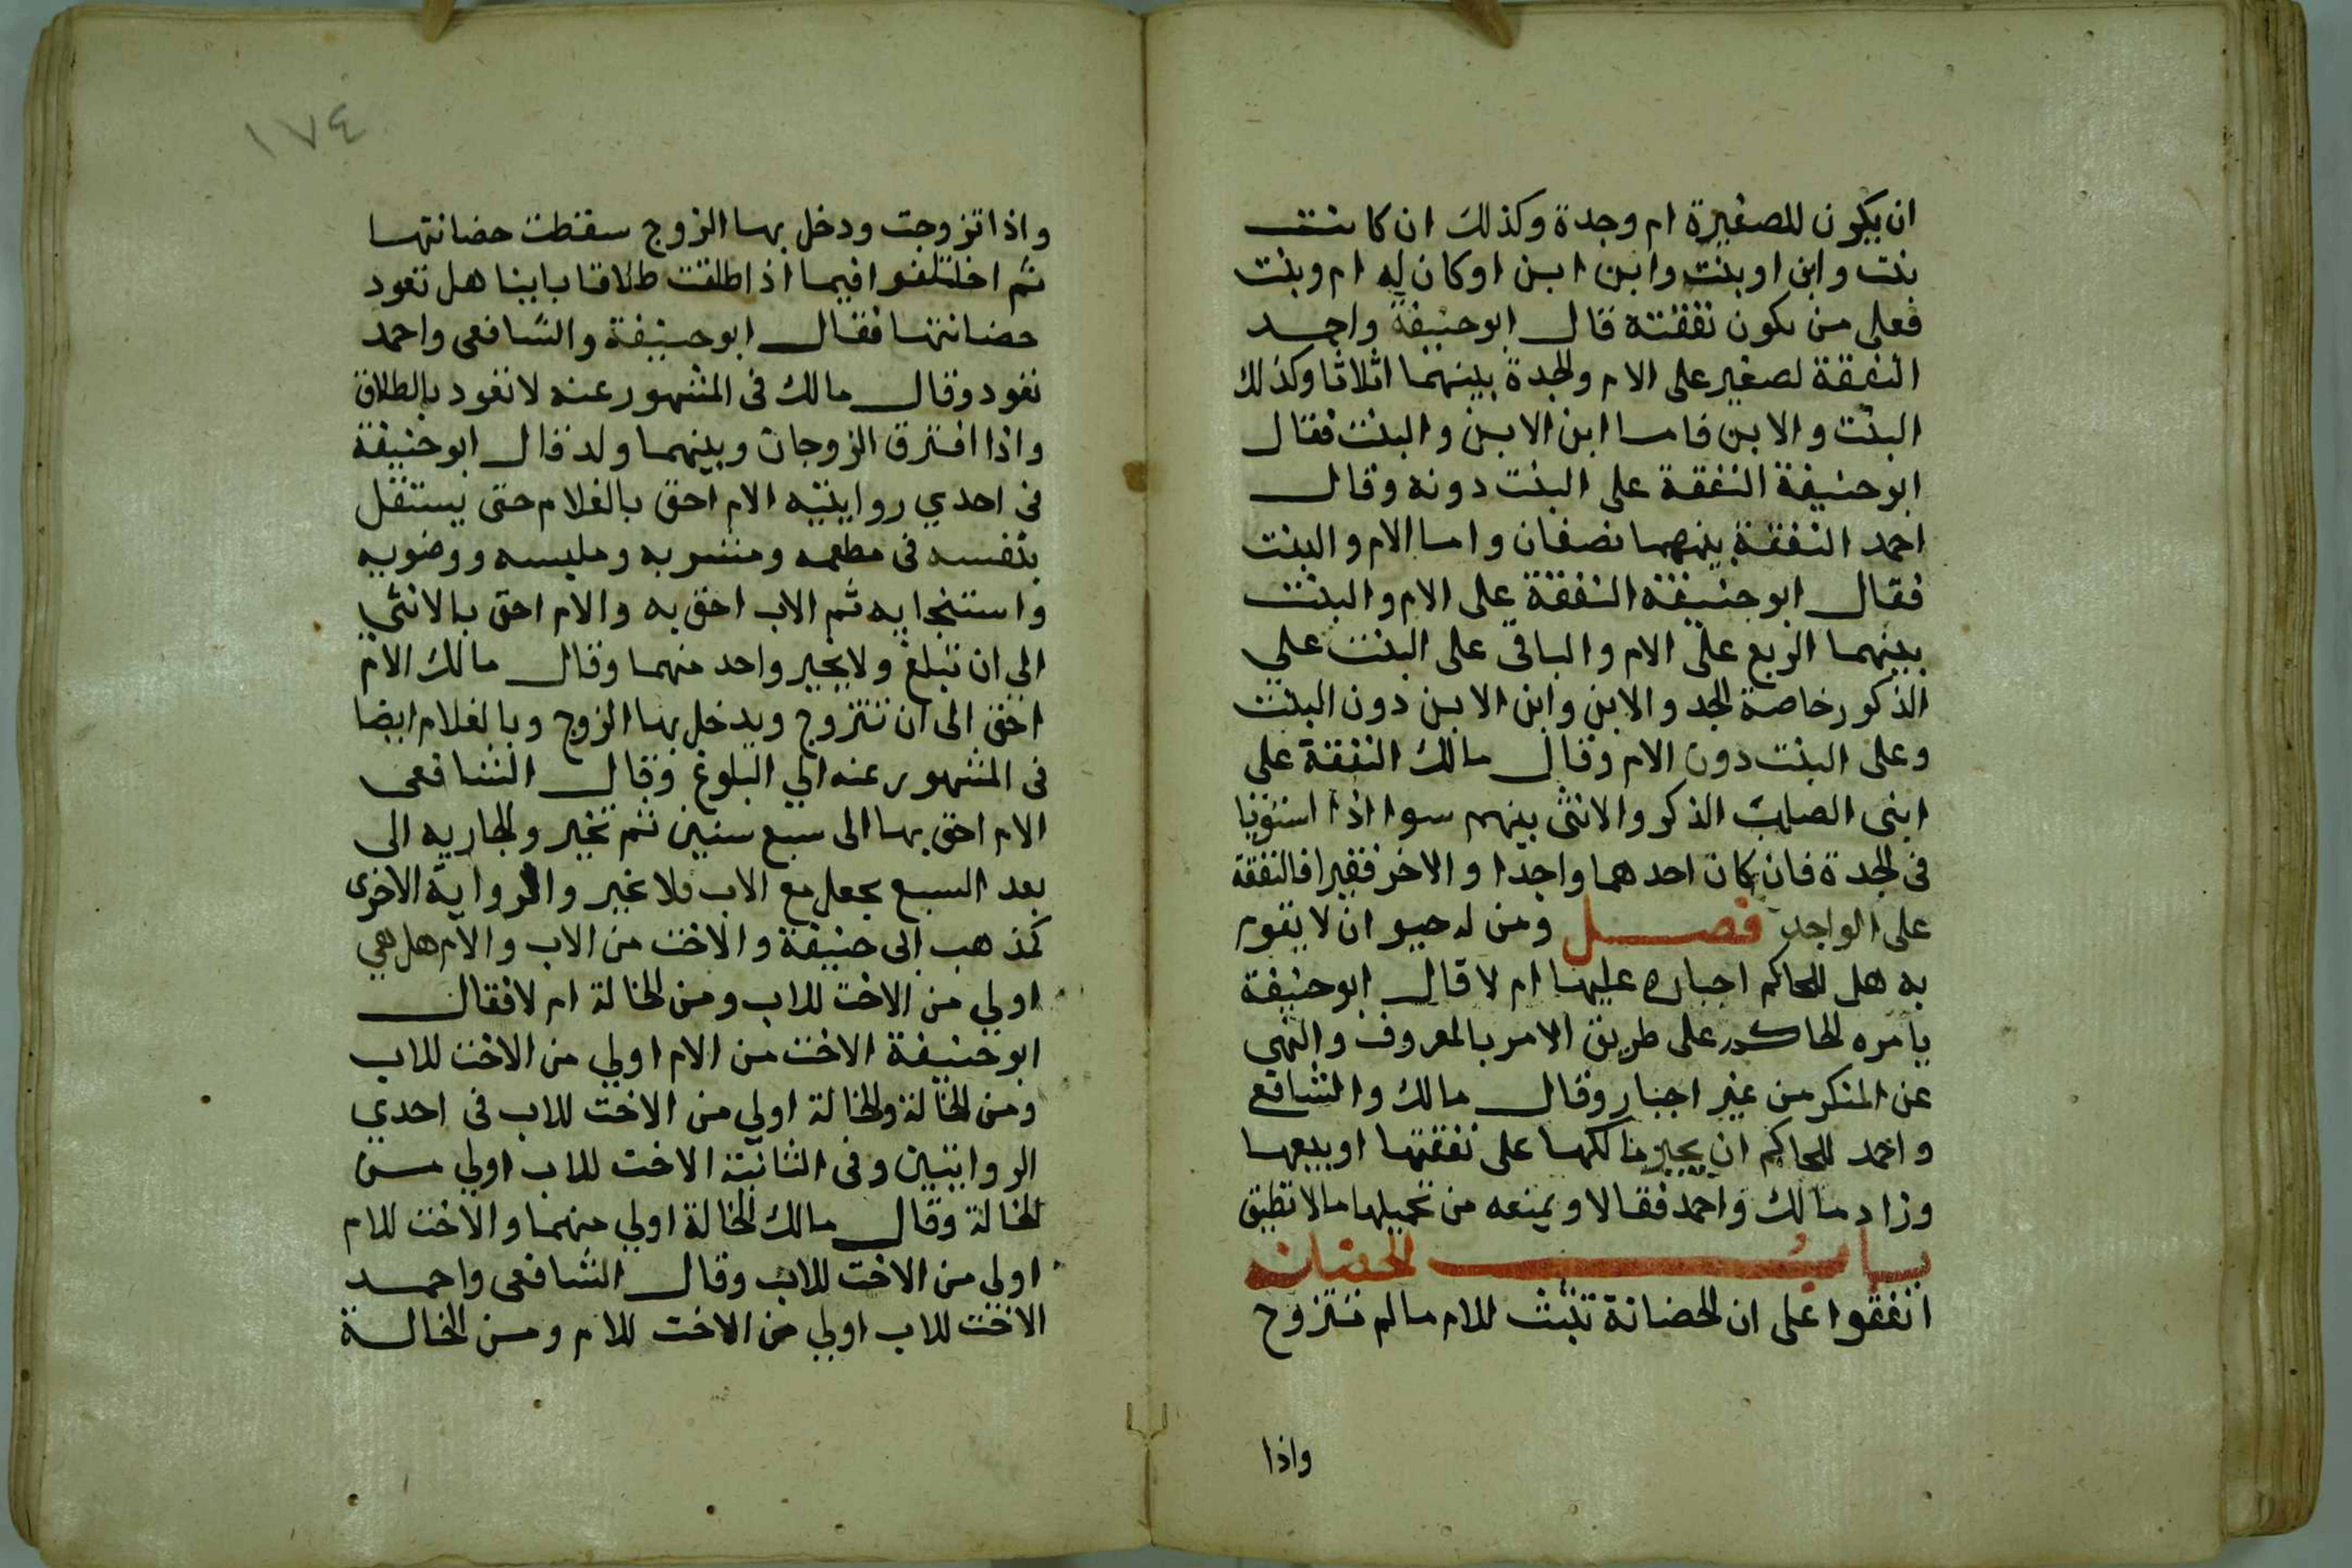 ان يكون للصغيرة ام وجدة وكذلك ان كانت
بنت وابن او بنت وابن ابن او كان له ام وبنت
فعلى من يكون نفقته قال ابو حنيفة واحمد
النفقة لصغير على الام والجدة بينهما اثلاثا وكذلك
البنت والابن فاما ابن الابن والبنت فقال
ابو حنيفة النفقة على البنت دونه وقال
احمد النفقة بينهما نصفان واما الام والبنت
فقال ابو حنيفة النفقة على الام والبنت
بينهما الربع على الام والباقى على البنت علي
الذكور خاصة الجد والابن وابن الابن دون البنت
وعلى البنت دون الام وقال مالك النفقة علي
ابنى الصلب الذكر والانثى بينهم سوا اذا استويا
فى الجدة فان كان احدهما واجدا والاخر فقيرا فالنفقة
على الواجد فصل ومن له حيوان لا يقوم
به هل للحاكم اجباره عليها ام لا قال ابو حنيفة
يامره الحاكم على طريق الامر بالمعروف والنهي
عن المنكر من غير اجبار وقال مالك والشافع
واحمد للحاكم ان يجبر مالكها على نفقتها او بيعها
وزاد مالك واحمد فقالا ويمنعه من تحميلها مالا تطيق
باب
اتفقوا على ان الحضانة تثبت للام مالم تتزوج
واذا
١٧٤
واذا تزوجت ودخل بها الزوج سقطت حضانتها
ثم اختلفوا فيما اذا طلقت طلاقا باينا هل تعود
حضانتها فقال ابو حنيفة والشافعى واحمد
تعود وقال مالك فى المشهور عنه لا تعود بالطلاق
واذا افترق الزوجان وبينهما ولد قال ابو حنيفة
فى احدي روايتيه الام احق بالغلام حتى يستقل
بنفسه فى مطعمه ومشربه وملبسه ووضويه
واستنجايه ثم الاب احق به والام احق بالانثي
الي ان تبلغ ولا يخير واحد منهما وقال مالك الام
احق الى ان تتزوج ويدخل بها الزوج وبالغلام ايضا
فى المشهور عنه الي البلوغ وقال الشافعى
الام احق بها الى سبع سنين ثم تخير والجاريه الى
بعد السبع يجعل مع الاب فلا تخير والرواية الاخرى
كمذهب ابى حنيفة والاخت من الاب والام هل هي
اولي من الاخت للاب ومن الخالة ام لا فقال
ابو حنيفة الاخت من الام اولي من الاخت للاب
ومن الخالة والخالة اولي من الاخت للاب فى احدي
الروايتين وفى الثانية الاخت للاب اولي من
الخالة وقال مالك الخالة اولي منهما والاخت للام
اولي من الاخت للاب وقال الشافعى واحمد
الاخت للاب اولي من الاخت للام ومن الخالة